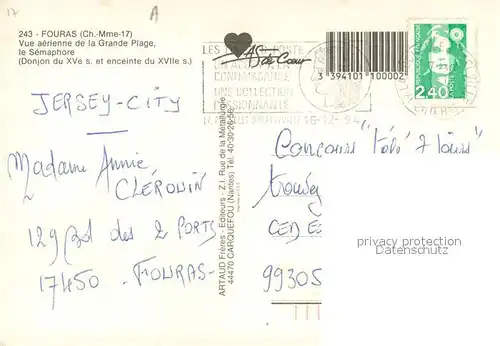 17
A
243 - FOURAS (Ch.-Mme-17)
Vue aérienne de la Grande Plage,
le Sémaphore
(Donjon du XVe s. et enceinte du XVIIe s.)
As de Cœur
3 394101 100002
2,40
LES
CONNAISSANCE
UNE COLLECTION
PASSIONNANTE
16-12-94
JERSEY-CITY
Madame Annie
CLEROUIN
129 Bd des 2 PORTS
17450 - FOURAS-
ARTAUD Frères - Editeurs - Z.I. Rue de la Métallurgie
44470 CARQUEFOU (Nantes) Tél. 40-30-26-56
Concours "Télé 7 Jours"
CED E
99305
privacy protection
Datenschutz